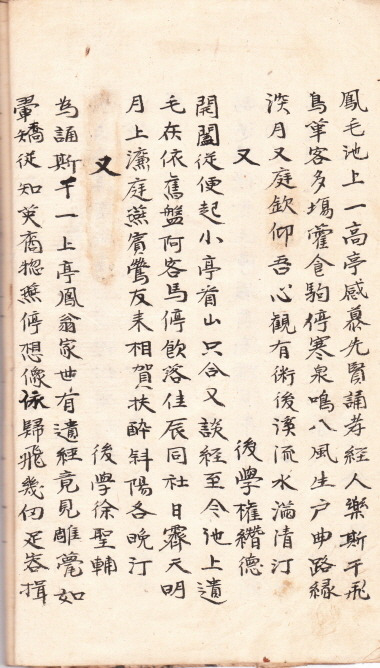 鳳毛池上一高亭感慕先賢誦孝經人樂斯干飛
鳥革客多場藿食駒停寒泉鳴八風生戶曲路緣
淡月又庭欽仰吾心觀有術後溪流水滿清汀
又 後學權纘德
開闔從便起小亭首山只合又談經至今池上遺
毛在依舊盤阿客馬停飮落佳辰同社日霽天明
月上濂庭燕賓鶯友來相賀扶醉斜陽各晩汀
又 後學徐聖輔
為誦斯干一上亭鳳翁家世有遺經竟見雕甍如
翬矯從知英裔揔停想像依歸飛幾揖